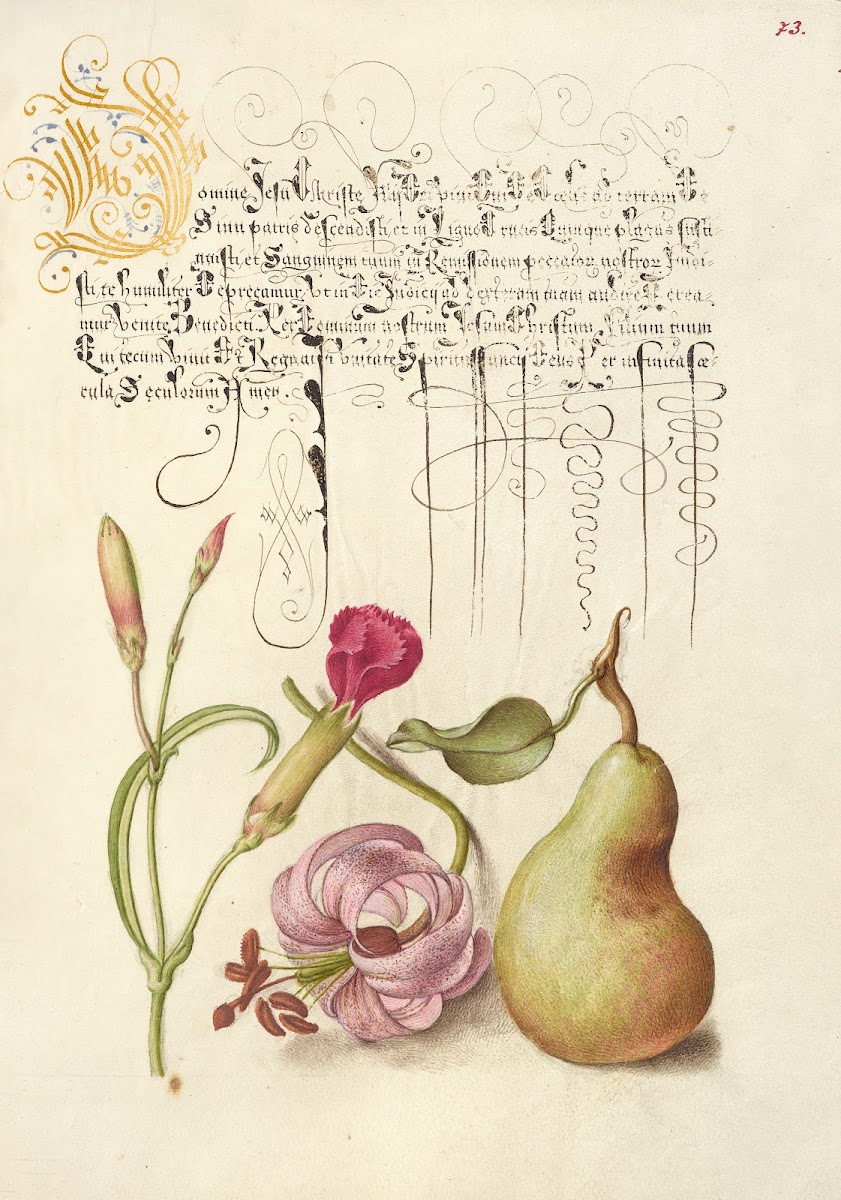 73.
Domine Jesu Christe Filij Dei vivi Qui De Cœlis ad terram De
Sinu patris descendisti, et in Ligno Crucis Quinque plagas susti-
nuisti, et Sanguinem tuum in Remissionem peccator nostror Fudi-
sti, te humiliter Deprecamur, Vt in Die Judicij ad dexteram tuam audire Merea-
mur, Venite Benedicti. Per Dominum nostrum Jesum Christum, Filium tuum
Qui tecum Vivit Et Regnat In Vnitate Spiritus sancti Deus Per infinita sœ-
cula Sęculorum Amen.